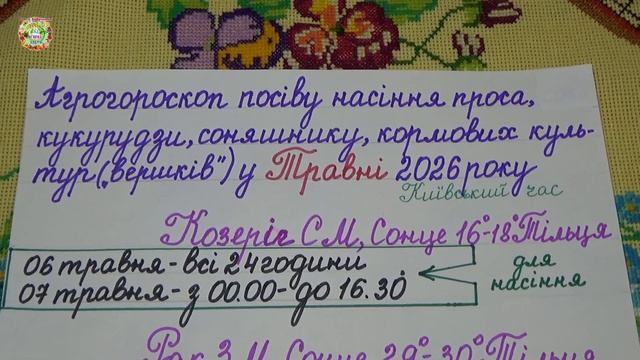 Агрогороскоп посіву насіння проса,
кукурудзи, соняшнику, кормових куль-
тур („вершків") у Травні 2026 року
Київський час
Козеріг СМ, Сонце 16°-18° Тільця
06 травня - всі 24 години
07 травня - з 00.00 - до 16.30
для
насіння
Рак З М, Сонце 29°-30° Тільця